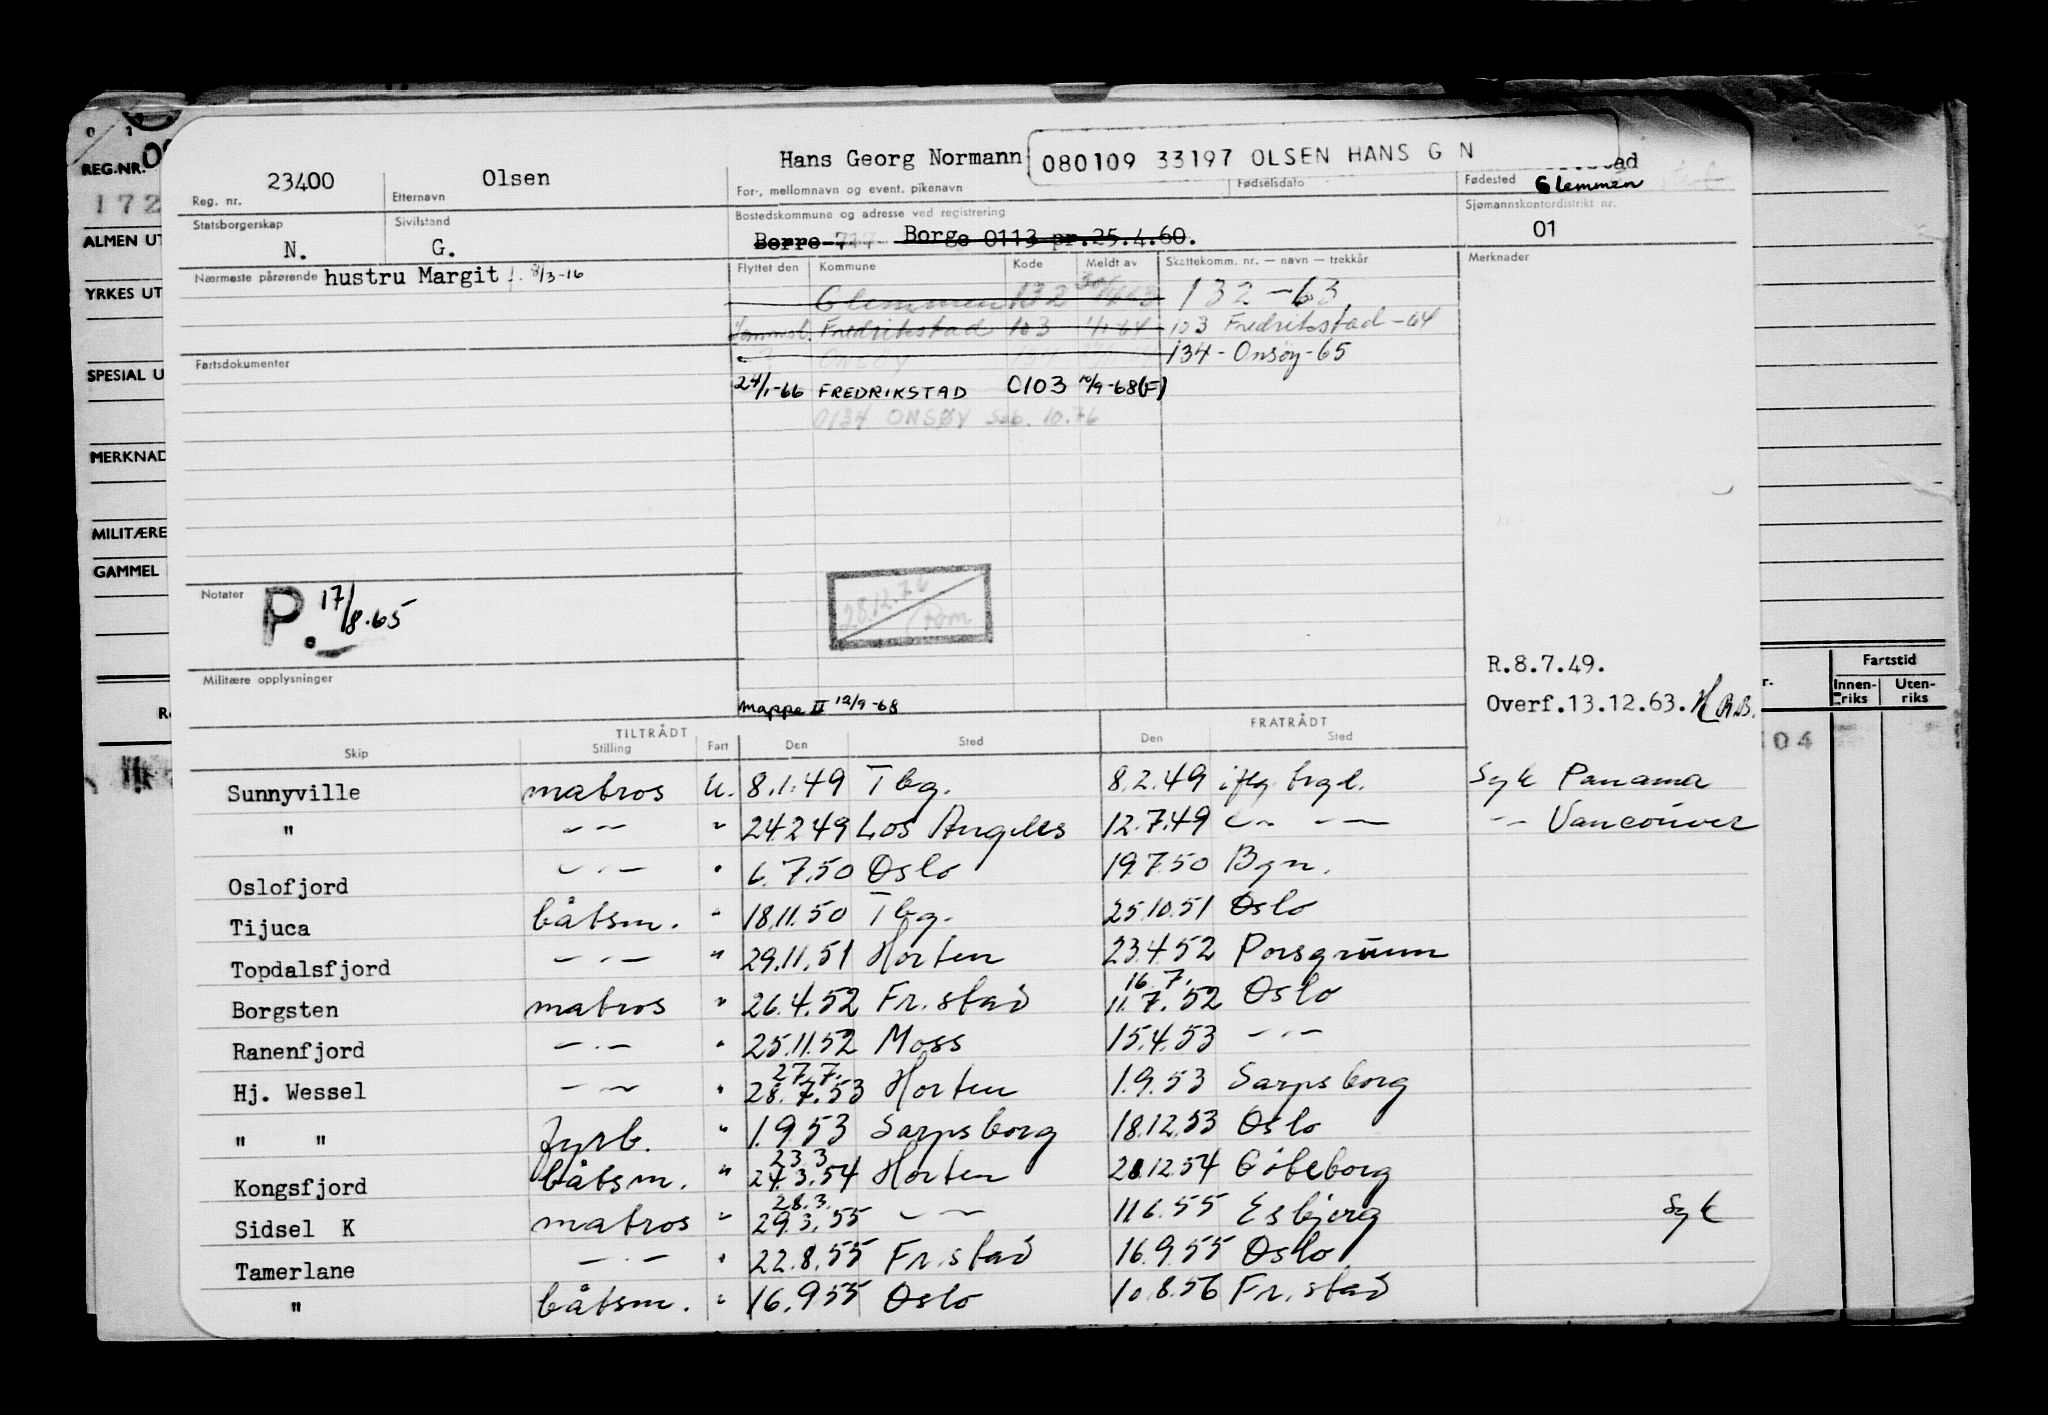 REG.NR.
172
ALMEN UT
YRKES UT
SPESIAL U
MERKNAD
MILITÆRE
GAMMEL
Hans Georg Normann 080109 33197 OLSEN HANS G N
23400 Olsen
Reg. nr. Etternavn For-, mellomnavn og event. pikenavn Fødselsdato Fødested Glemmen
Statsborgerskap Sivilstand Bostedskommune og adresse ved registrering Sjømannskontordistrikt nr.
N. G. Borre Borge 0113 pr.25.4.60. 01
Nærmeste pårørende hustru Margit 8/3-16 Flyttet den Kommune Kode Meldt av Skattekomm. nr. — navn — trekkår Merknader
Glemmen 132 132-63
Fredrikstad 103 103 Fredrikstad-64
Fartsdokumenter ONSØY 134-Onsøy-65
24/1-66 FREDRIKSTAD 0103 10/9-68(F)
0134 ONSØY 10.76
Notater P. 17/8.65
28.12.76
R.8.7.49.
Militære opplysninger
Overf.13.12.63.
Mappe II 12/9-68
TILTRÅDT FRATRÅDT
Skip Stilling Fart Den Sted Den Sted
Fartstid
Innenriks Utenriks
04
Sunnyville matros U. 8.1.49 Tbg. 8.2.49 Syk Panama
" — " — " 24.2.49 Los Angeles 12.7.49 — " — — " — Vancouver
Oslofjord — " — " 6.7.50 Oslo 19.7.50 Bgn.
Tijuca båtsm. " 18.11.50 Tbg. 25.10.51 Oslo
Topdalsfjord — " — " 29.11.51 Horten 23.4.52 Porsgrunn
16.7.
Borgsten matros " 26.4.52 Fr.stad 11.7.52 Oslo
Ranenfjord — " — " 25.11.52 Moss 15.4.53 — " —
27.7.
Hj. Wessel — " — " 28.7.53 Horten 1.9.53 Sarpsborg
" " fyrb. " 1.9.53 Sarpsborg 18.12.53 Oslo
23.3
Kongsfjord båtsm. " 24.3.54 Horten 21.12.54 Göteborg
28.3.
Sidsel K matros " 29.3.55 — " — 11.6.55 Esbjerg Syk
Tamerlane — " — " 22.8.55 Fr.stad 16.9.55 Oslo
" båtsm. " 16.9.55 Oslo 10.8.56 Fr.stad